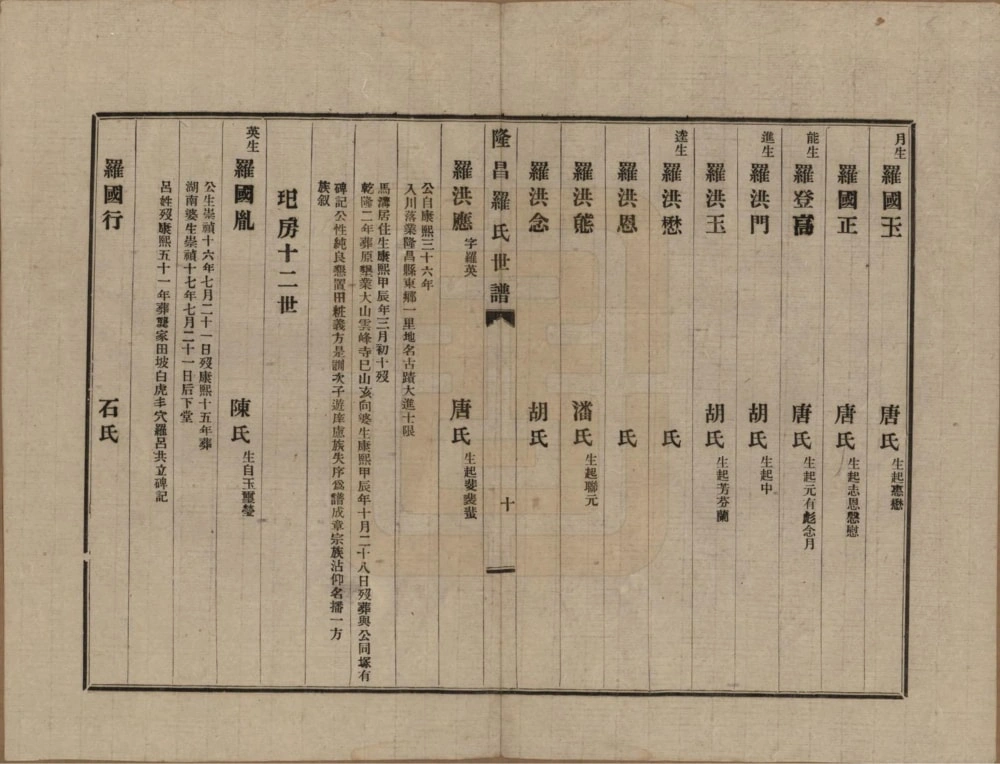 月生 羅國玉 唐氏 生起憑懋
羅國正 唐氏 生起志恩慇慰
能生 羅登高 唐氏 生起元有彪念月
進生 羅洪門 胡氏 生起中
羅洪玉 胡氏 生起芳芬蘭
逵生 羅洪懋 氏
羅洪恩 氏
羅洪態 潘氏 生起聯元
羅洪念 胡氏
隆昌羅氏世譜 十
羅洪應 字羅英 唐氏 生起斐裴蜚
公自康熙三十六年
入川落業隆昌縣東鄉一里地名古蹟大進十限
馬灣居住生康熙甲辰年三月初十歿
乾隆二年葬原墾業大山雲峰寺巳山亥向婆生康熙甲辰年十月二十八日歿葬與公同塚有
碑記公性純良懇置田粧義方是訓次子遊庠慮族失序爲譜成章宗族沾仰名播一方
族叙
玘房十二世
英生 羅國胤 陳氏 生自玉璽瑩
公生崇禎十六年七月二十一日歿康熙十五年葬
湖南婆生崇禎十七年七月二十一日后下堂
呂姓歿康熙五十一年葬龔家田坡白虎丰穴羅呂共立碑記
羅國行 石氏